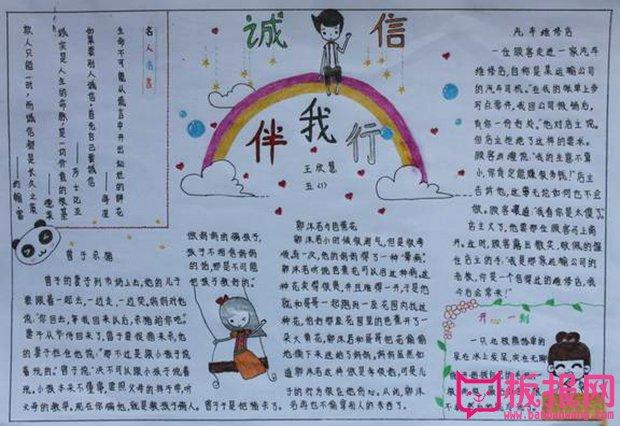 诚信
伴我行
王欣慧
五(1)
名人名言
生命不可能从谎言中开出灿烂的鲜花
——海涅
如果要别人诚信，首先自己要诚信
——莎士比亚
诚实是人生的命脉，是一切价值的根基
——德莱
欺人只能一时，而诚信都是长久之策
——约翰雷
曾子杀猪
曾子的妻子到市场上去，他的儿子
要跟着一起去，一边走，一边哭。妈妈对他
说：“你回去，等我回来以后，杀猪给你吃。”
妻子从市场回来了，曾子要捉猪来杀，他
的妻子拦住他说：“那不过是跟小孩子说
着玩的。”曾子说：“决不可以跟小孩子说着
玩。小孩本来不懂事，要照父母的样子学，听
父母的教导。现在你骗他，就是教孩子骗人。
做妈妈的骗孩子，
孩子不相信妈妈
的话，那是不可能
把孩子教好的。”
曾子于是把猪杀了。
郭沫若与芭蕉花
郭沫若小的时候淘气，但是很孝
顺。有一次，他的妈妈得了一种“晕病”。
郭沫若听说芭蕉花可以治这种病，这种
花卖得很贵，并且难得一开，于是他
就和哥哥一起跑到一座花园内找这
种花，他们那座花园里的芭蕉开了一
朵大黄花，郭沫若和哥哥把花偷偷
地摘下来送给了妈妈。妈妈虽然知
道郭沫若这样做是孝顺她，可是儿
子的行为很在他伤心。从此，郭沫
若再也不偷拿别人的东西了。
汽车维修店
一位顾客走进一家汽车
维修店，自称是某运输公司
的汽车司机。“在我的账单上多
写点零件，我回公司报销后，
有你一份好处。”他对店主说。
但店主拒绝了这样的要求。
顾客纠缠说：“我的生意不算
小，你肯定能赚很多钱！”店主
告诉他，这事无论如何也不会
做。顾客嚷道：“我看你是太傻了。”
店主火了，他要那位顾客马上离
开。这时，顾客露出微笑，敬佩的握
住店主的手：“我就是那家运输公司的
老板，你是一个信得过的维修店，我
今后会常来！”
开心一刻
一只北极熊
板报网
www.banbaowang.com